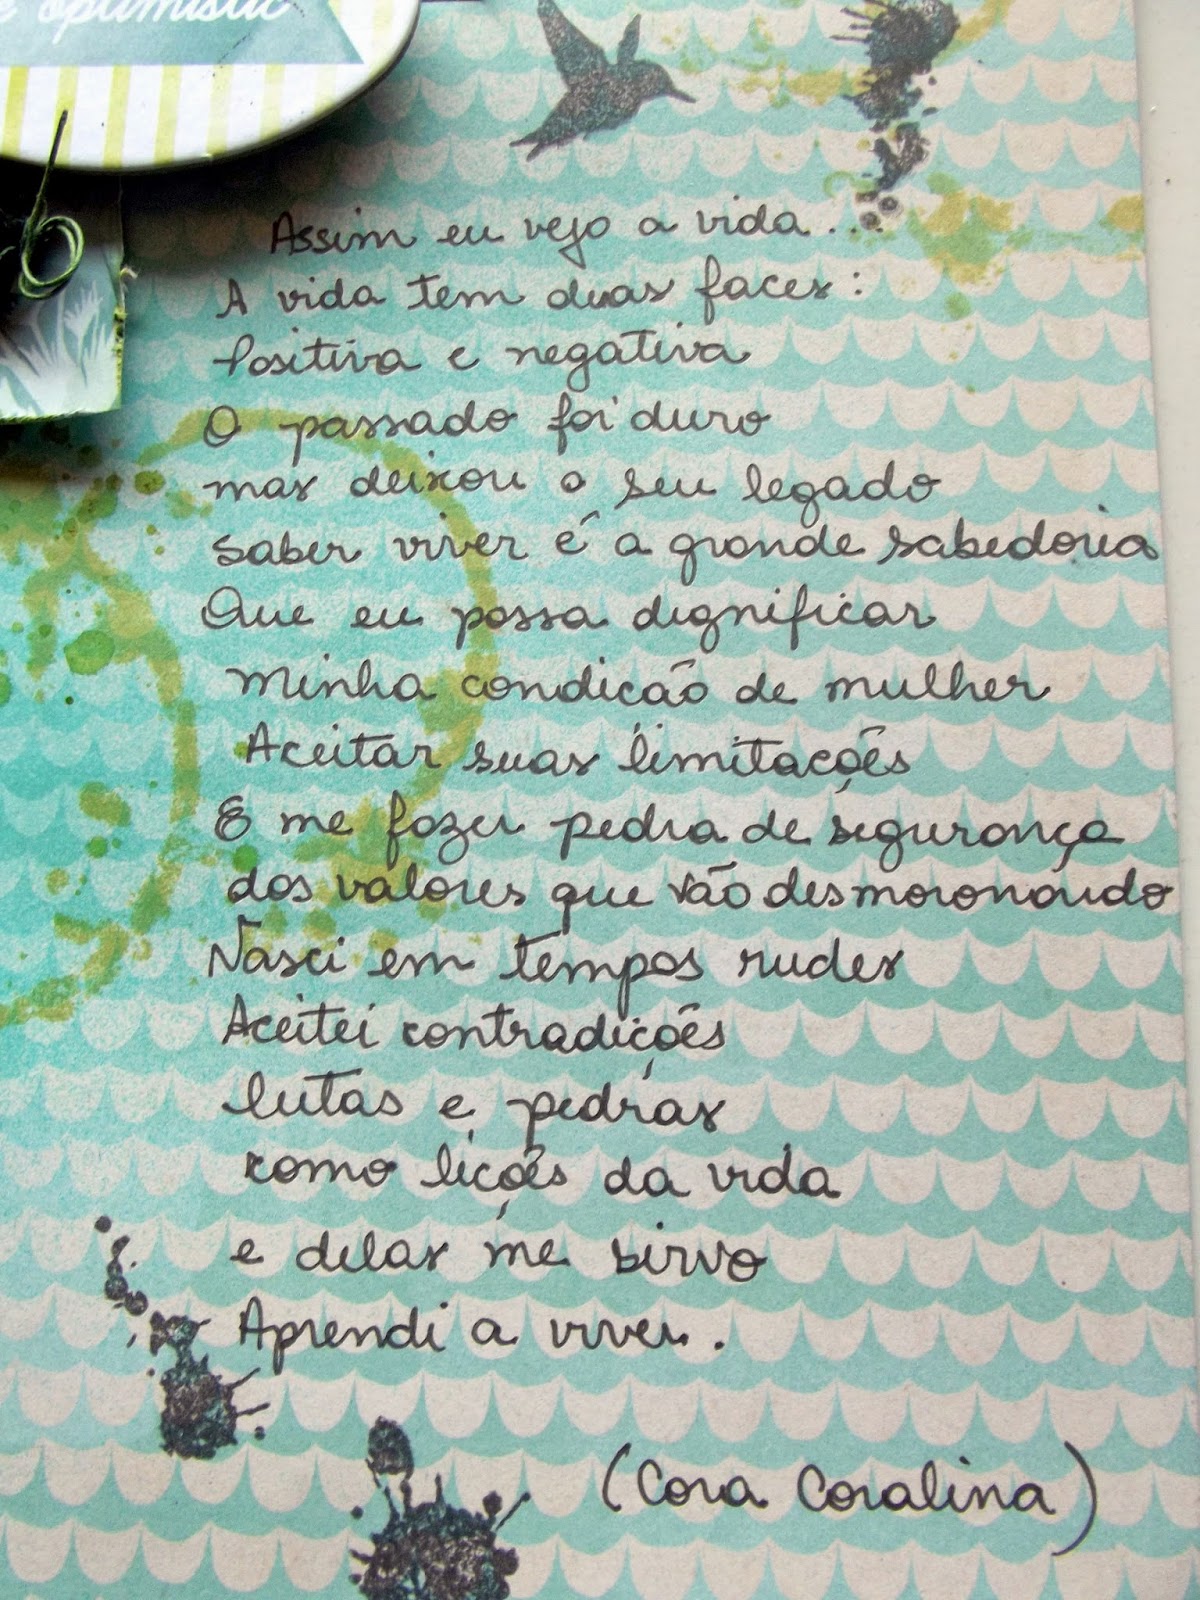 e optimistic
Assim eu vejo a vida...
A vida tem duas faces:
Positiva e negativa
O passado foi duro
mas deixou o seu legado
Saber viver é a grande sabedoria
Que eu possa dignificar
Minha condição de mulher
Aceitar suas limitações
E me fazer pedra de segurança
dos valores que vão desmoronando
Nasci em tempos rudes
Aceitei contradições
lutas e pedras
como lições da vida
e delas me sirvo
Aprendi a viver.
(Cora Coralina)